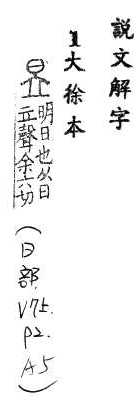 說文解字
1大徐本
昱 明日也从日
立聲余六切
(日部, V7上. P2. A5)